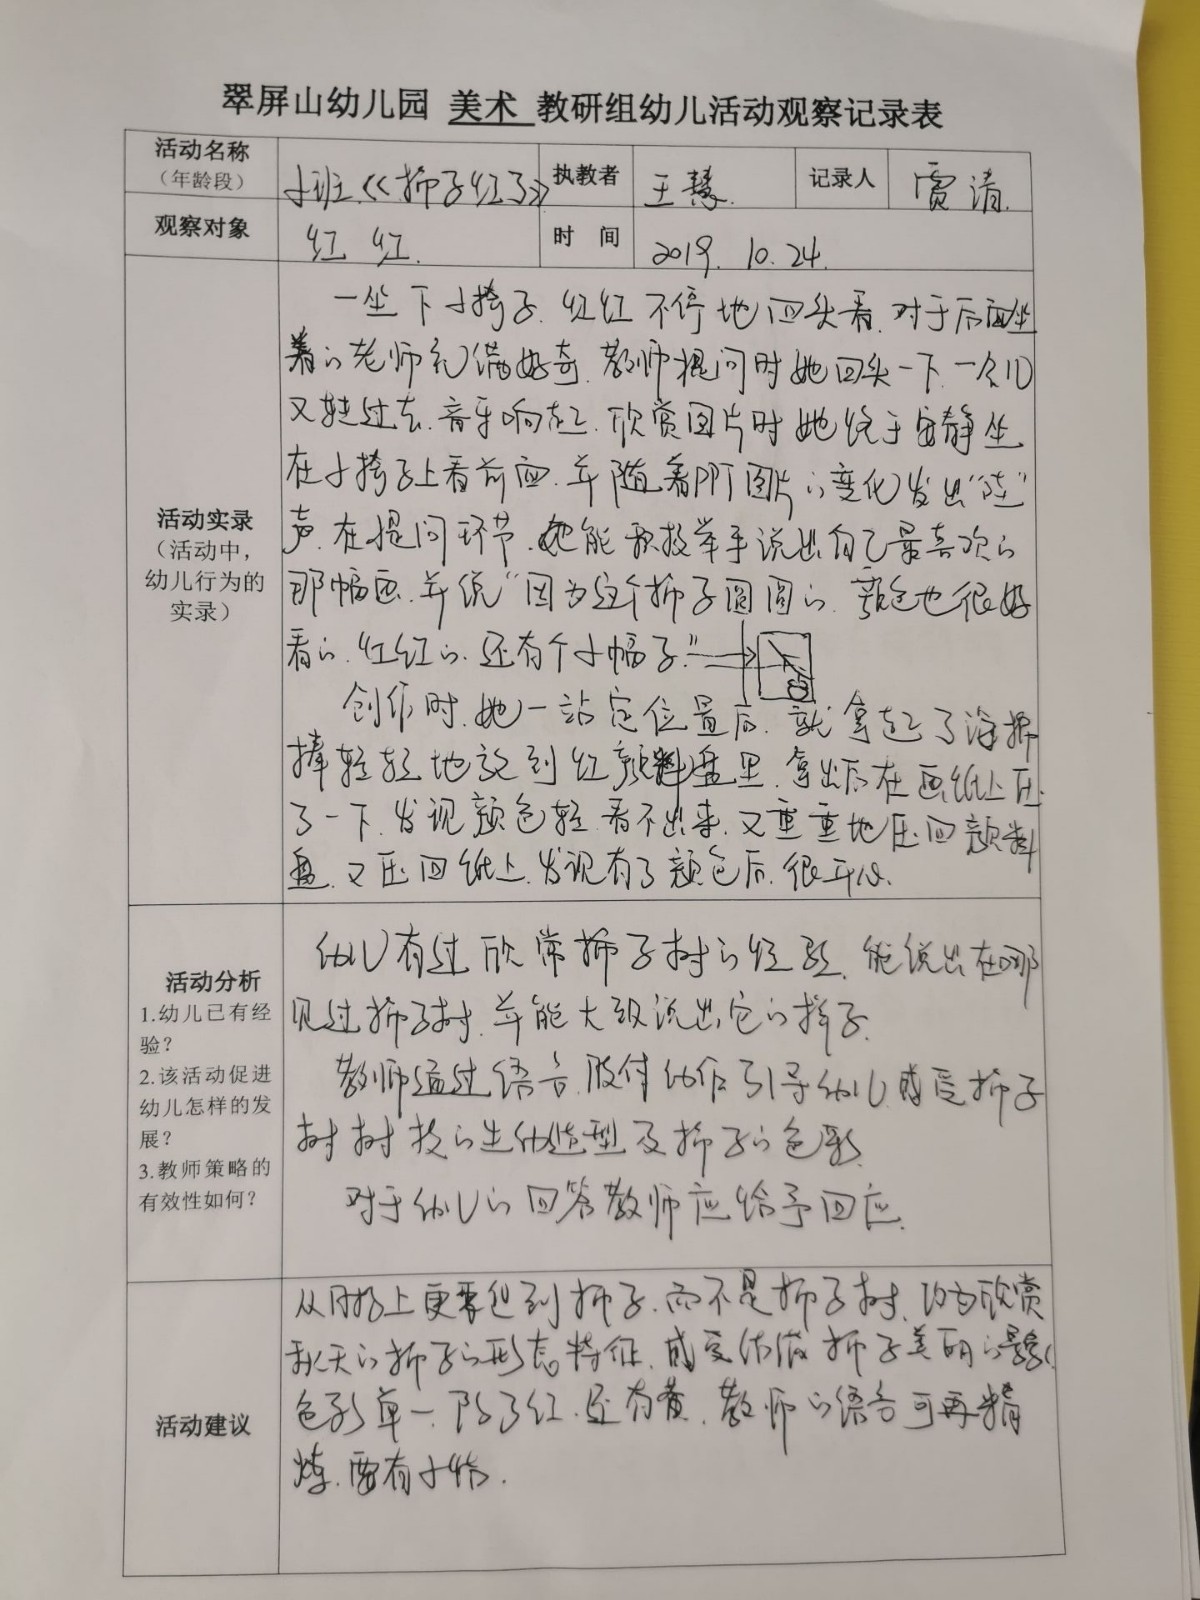 翠屏山幼儿园 美术 教研组幼儿活动观察记录表
活动名称
（年龄段）
小班《柿子红了》
执教者
王慧.
记录人
贾清.
观察对象
红 红.
时 间
2019. 10. 24.
活动实录
（活动中，
幼儿行为的
实录）
一坐下小椅子.红红不停地回头看.对于后面坐
着的老师充满好奇.教师提问时她回头一下.一会儿
又转过去.音乐响起.欣赏图片时她终于安静坐
在小椅子上看前面.并随着PPT图片的变化发出“哇”
声.在提问环节.她能积极举手说出自己最喜欢的
那幅画.并说“因为这个柿子圆圆的.颜色也很好
看的.红红的.还有个小帽子.”
创作时.她一站定位置后.就拿起了海绵
棒轻轻地放到红颜料盘里.拿出后在画纸上压
了一下.发现颜色轻.看不出来.又重重地压回颜料
盘.又压回纸上.发现有了颜色后.很开心.
活动分析
1.幼儿已有经
验？
2.该活动促进
幼儿怎样的发
展？
3.教师策略的
有效性如何？
幼儿有过欣常柿子树的经验.能说出在哪
见过柿子树.并能大致说出它的样子.
教师通过语言.肢体动作引导幼儿感受柿子
树树枝的生动造型及柿子的色彩.
对于幼儿的回答教师应给予回应.
活动建议
从目标上更要迁到柿子.而不是柿子树.
欣赏
秋天的柿子的形态特征.感受体验柿子美丽的景象.
色彩单一.除了红.还有黄.教师的语言可再精
炼.要有小结.